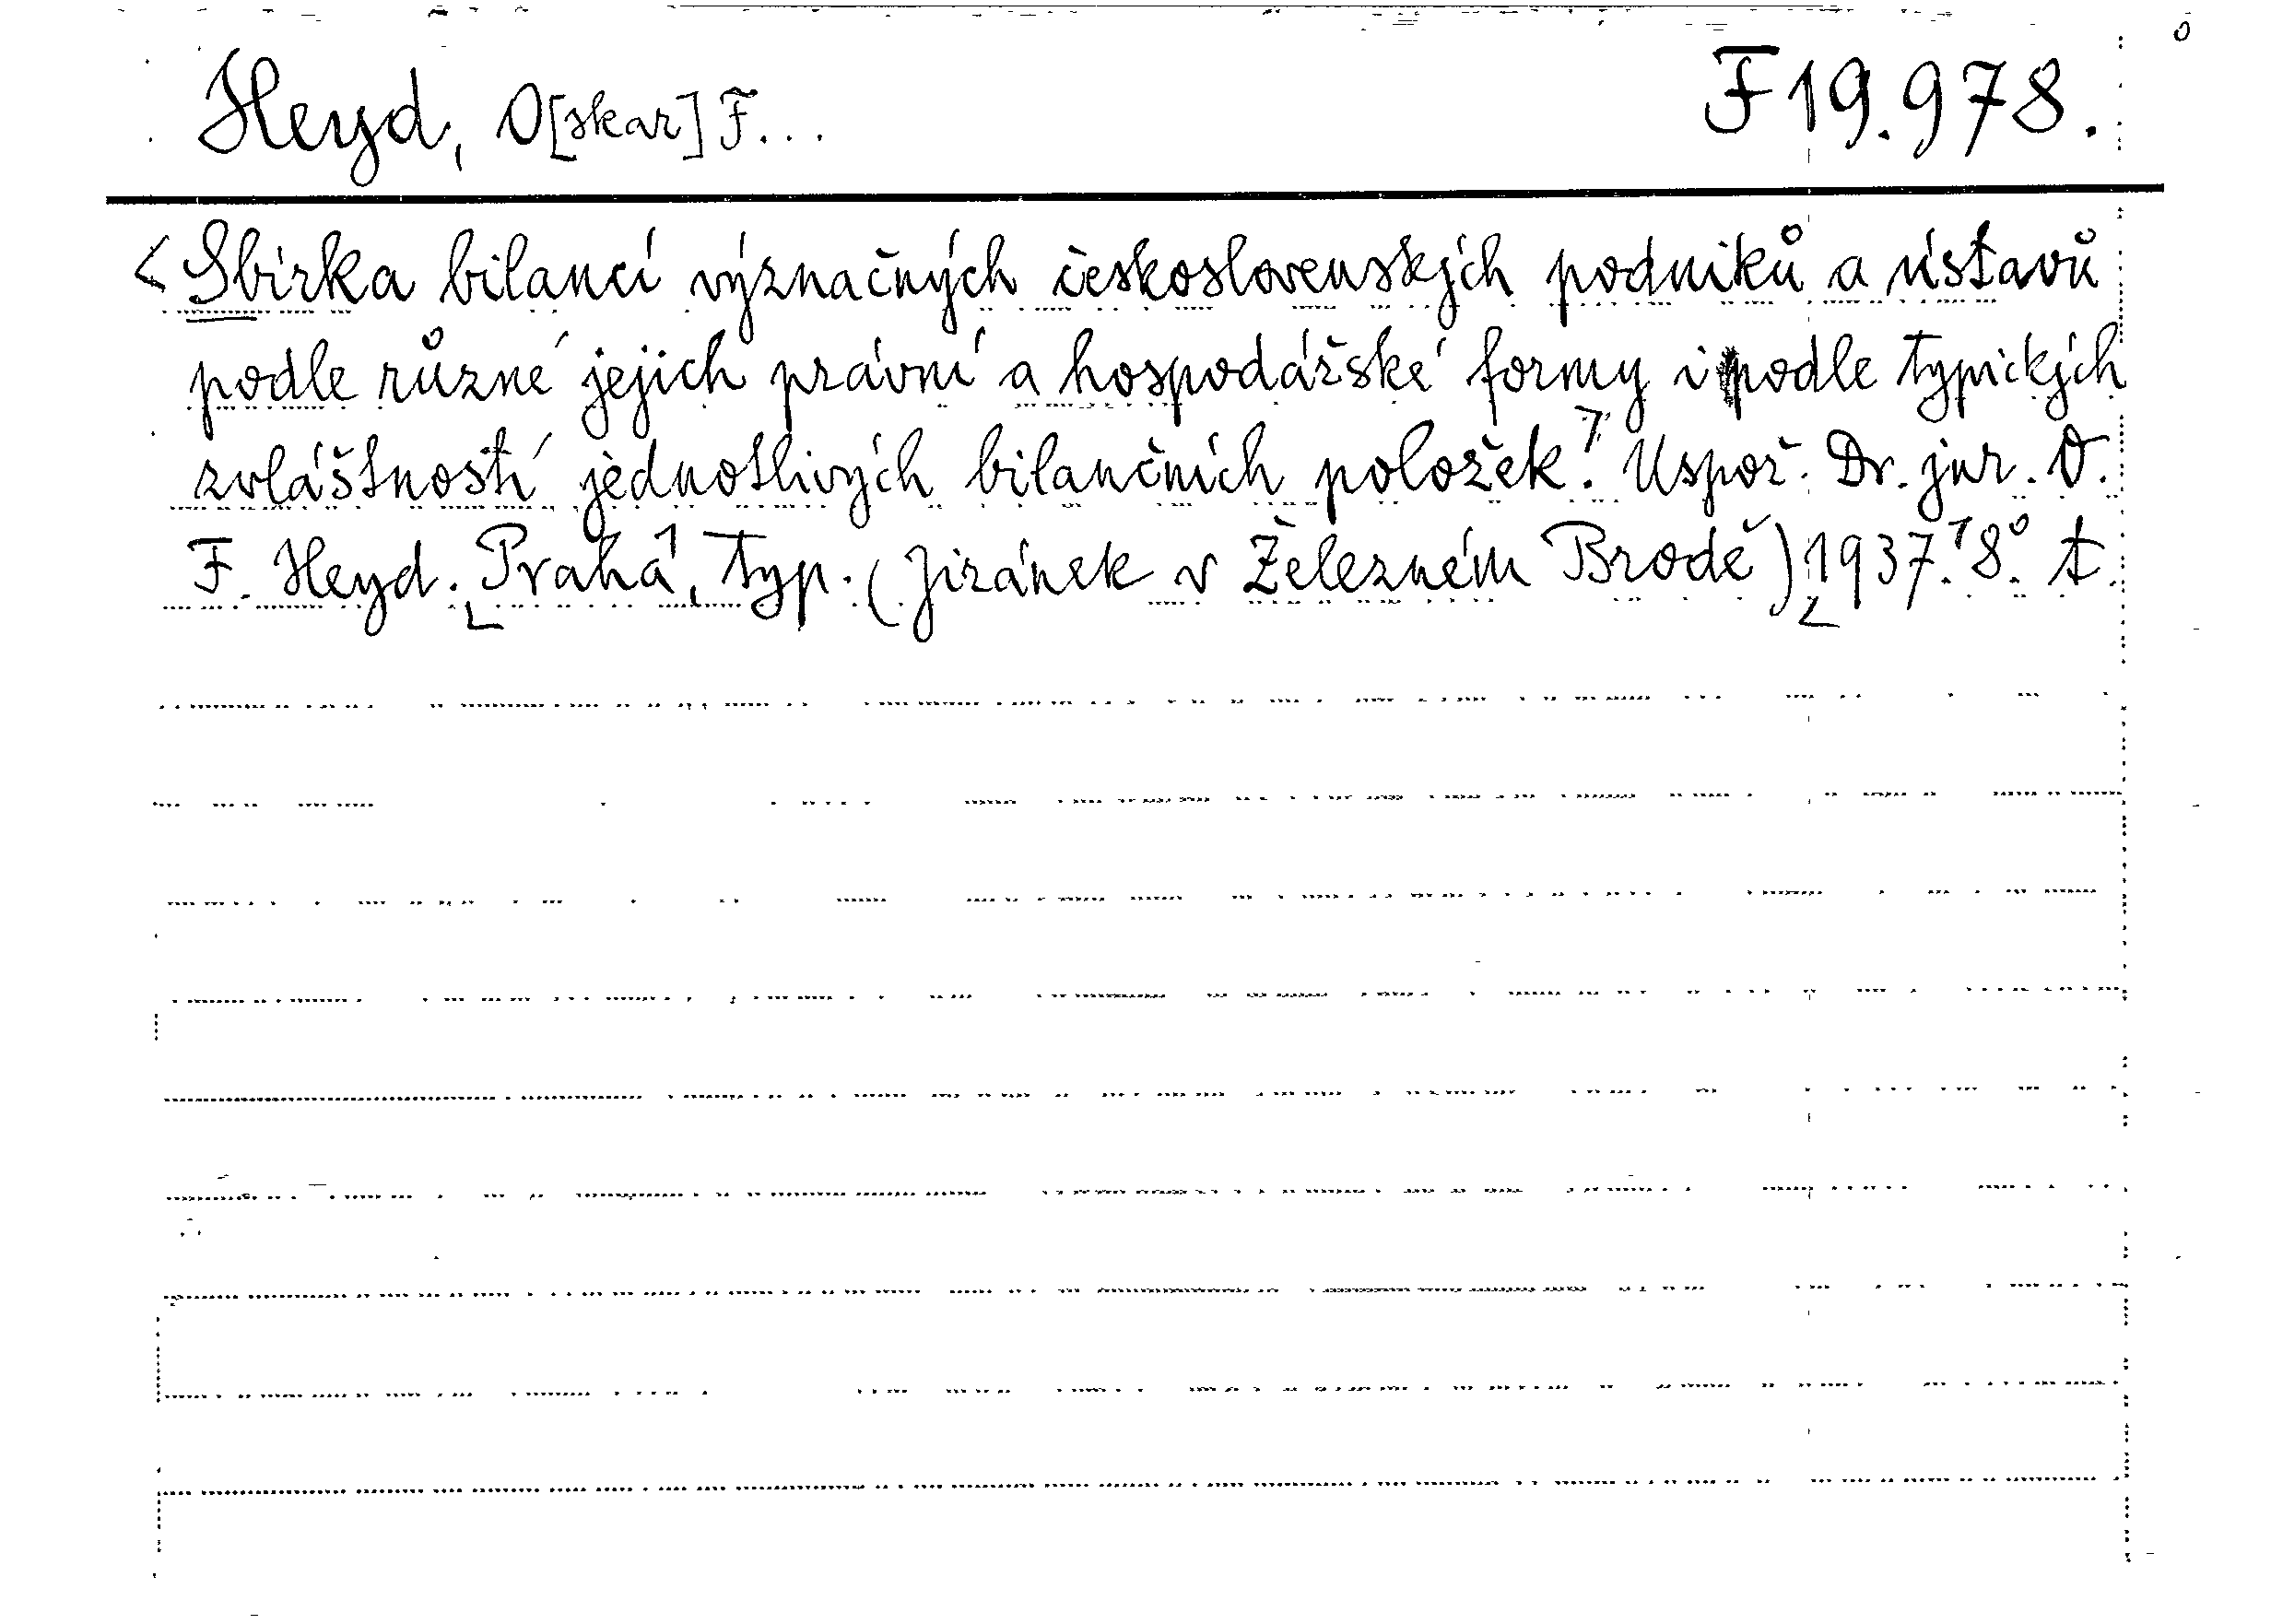 Heyd, O[skar] F... F 19.978.
Sbírka bilancí význačných československých podniků a ústavů
podle různé jejich právní a hospodářské formy i podle typických
zvláštností jednotlivých bilančních položek. Uspoř. Dr. jur. O.
F. Heyd. Praha, typ. (Jiránek v Železném Brodě) 1937. 8°. t.